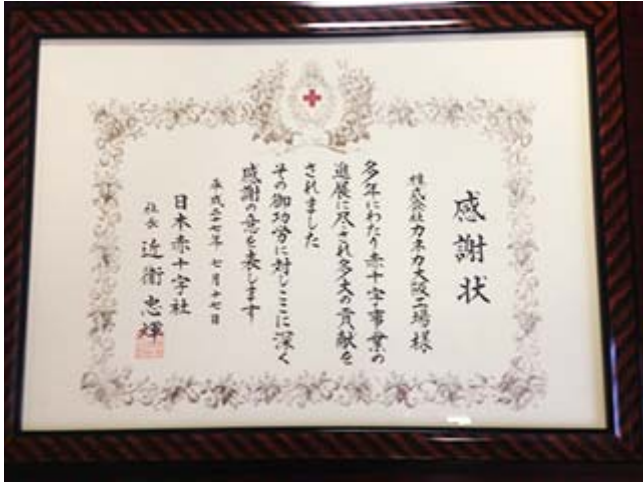 感謝状
株式会社カネカ大阪工場様
多年にわたり赤十字事業の
進展に尽され多大の貢献を
されました
その御功労に対しここに深く
感謝の意を表します
平成二十七年 七月十七日
日本赤十字社
社長 近衞忠煇